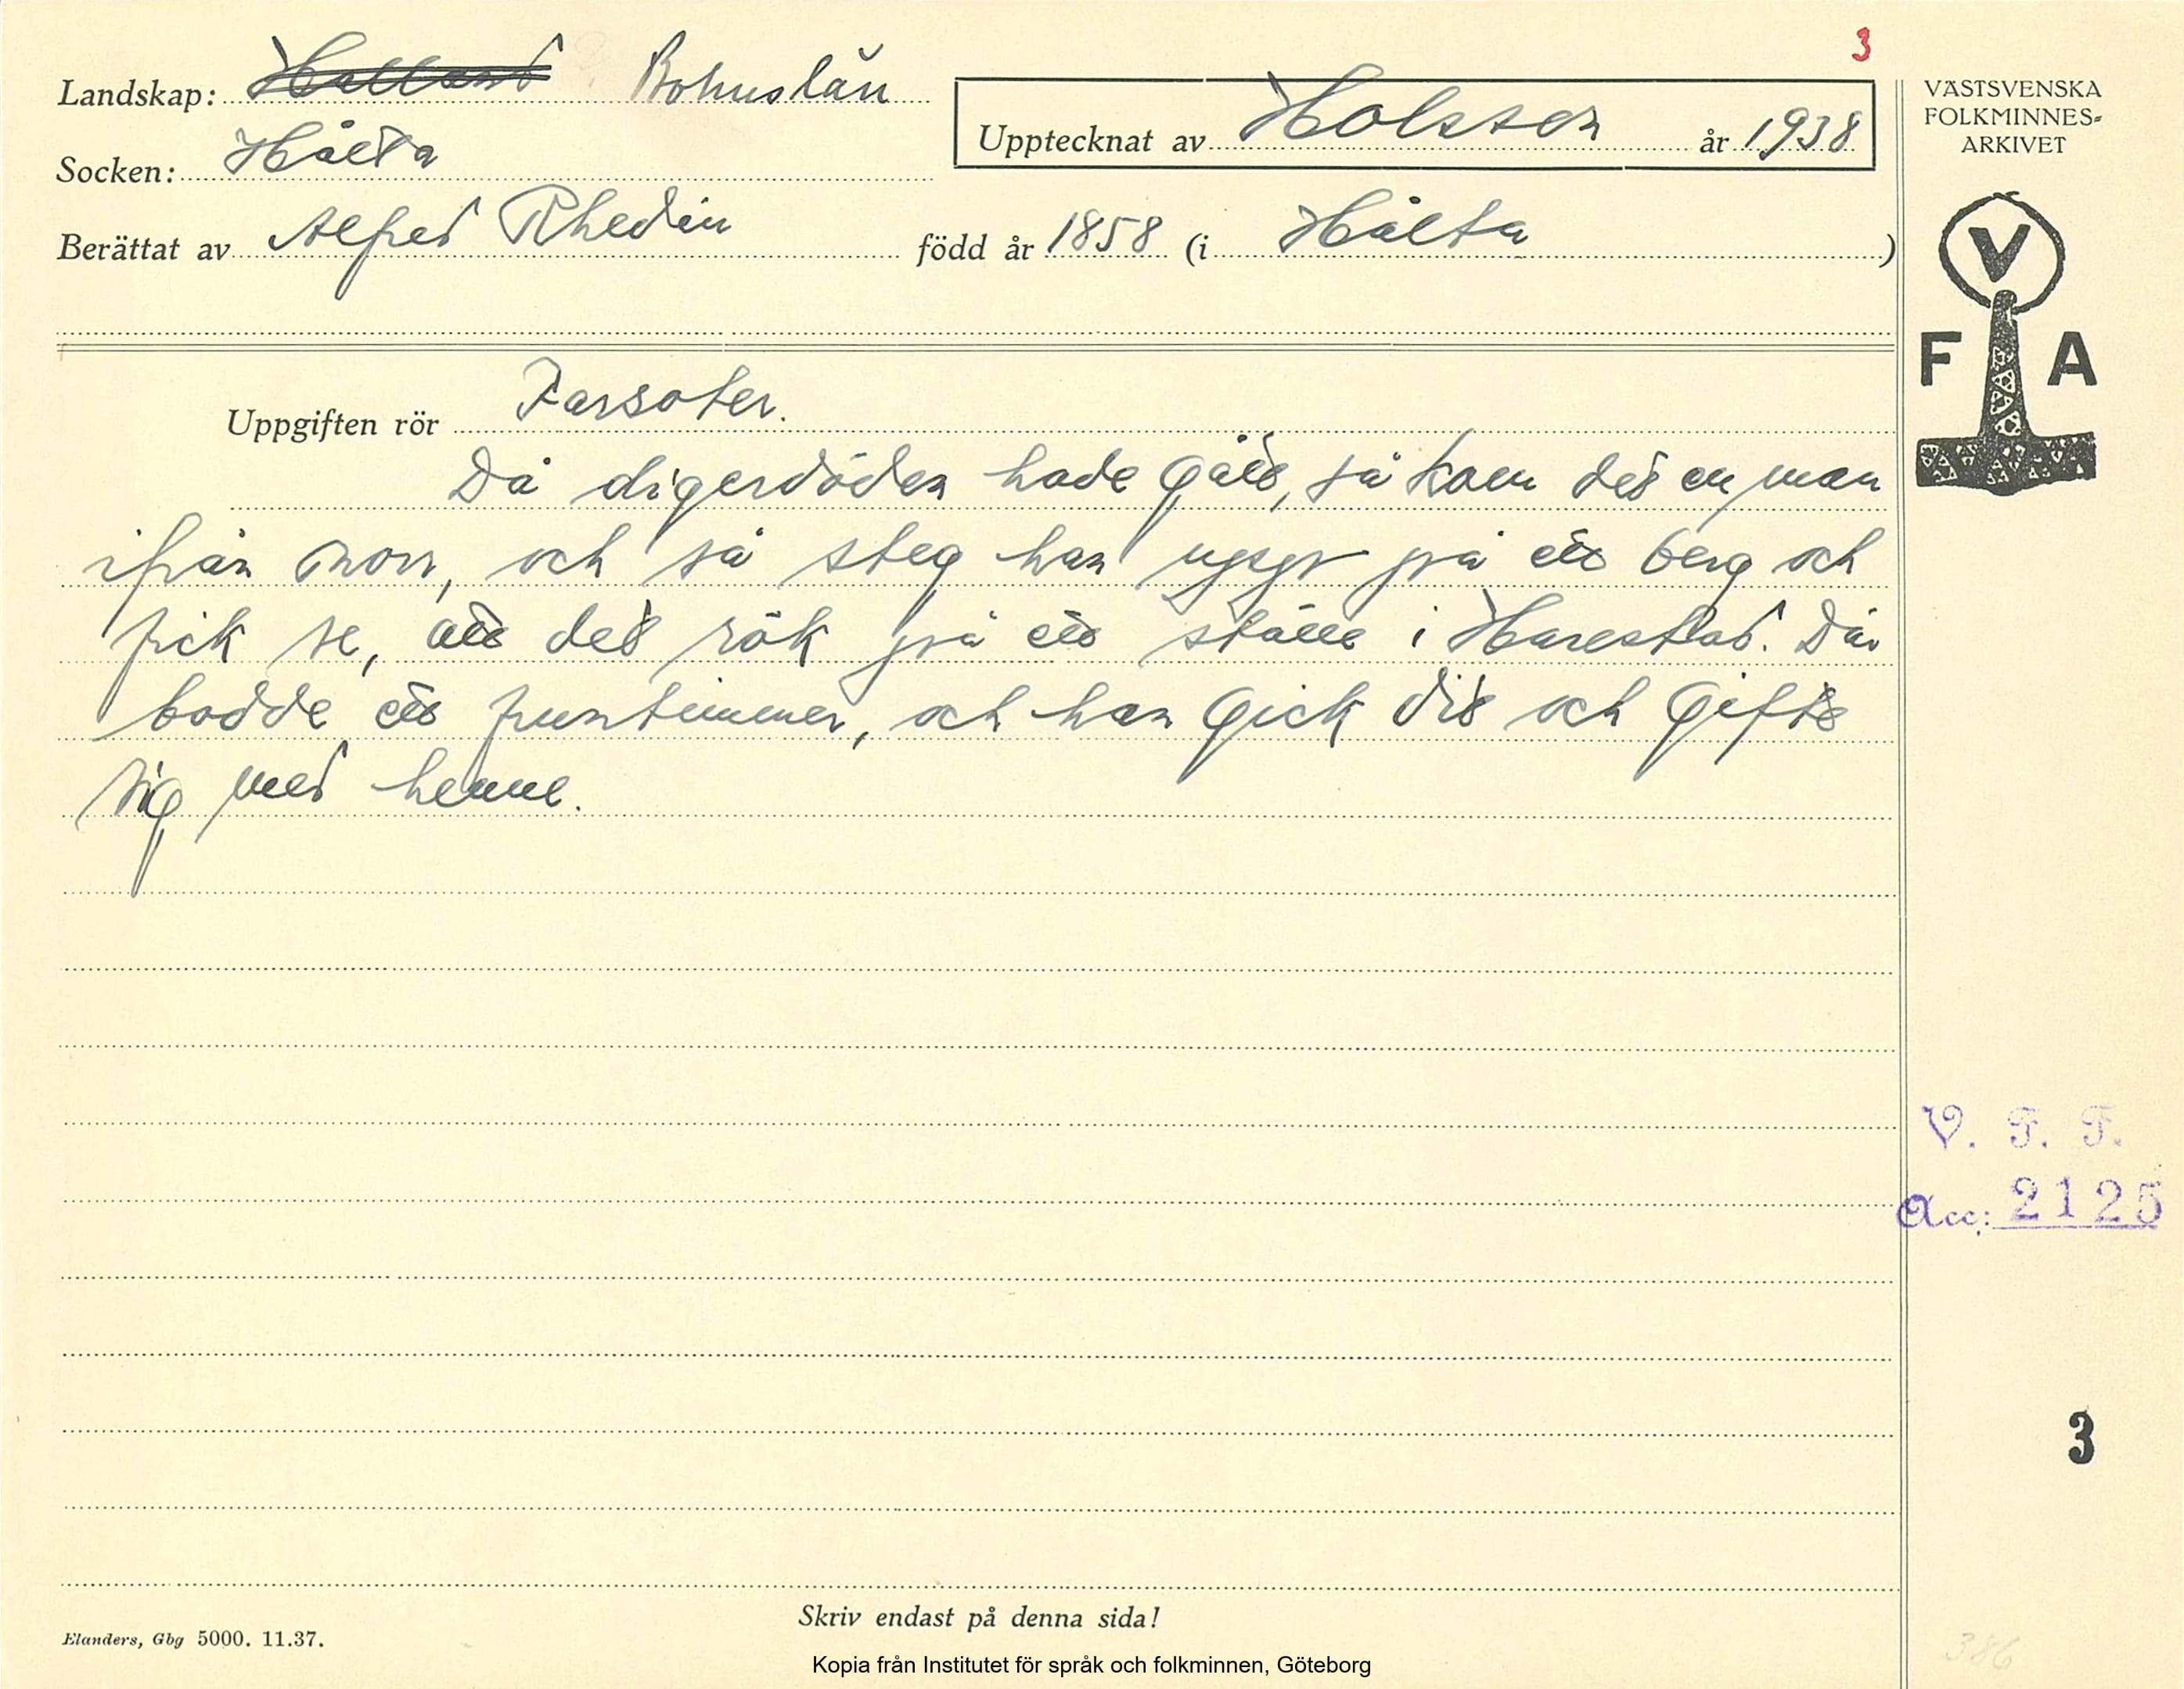 3
Landskap: Halland Bohuslän
Socken: Hålta
Upptecknat av Holsten år 1938
Berättat av Alfred Rhedin född år 1858 (i Hålta)
VÄSTSVENSKA
FOLKMINNES-
ARKIVET
V
F A
Uppgiften rör Farsoter.
Då digerdöden hade gått, så kom det en man
ifrån norr, och så steg han upp på ett berg och
fick se, att det rök på ett ställe i Harestad. Där
bodde ett fruntimmer, och han gick dit och gifte
sig med henne.
V. F. F.
Acc: 2125
3
Skriv endast på denna sida!
Elanders, Gbg 5000. 11.37.
386
Kopia från Institutet för språk och folkminnen, Göteborg